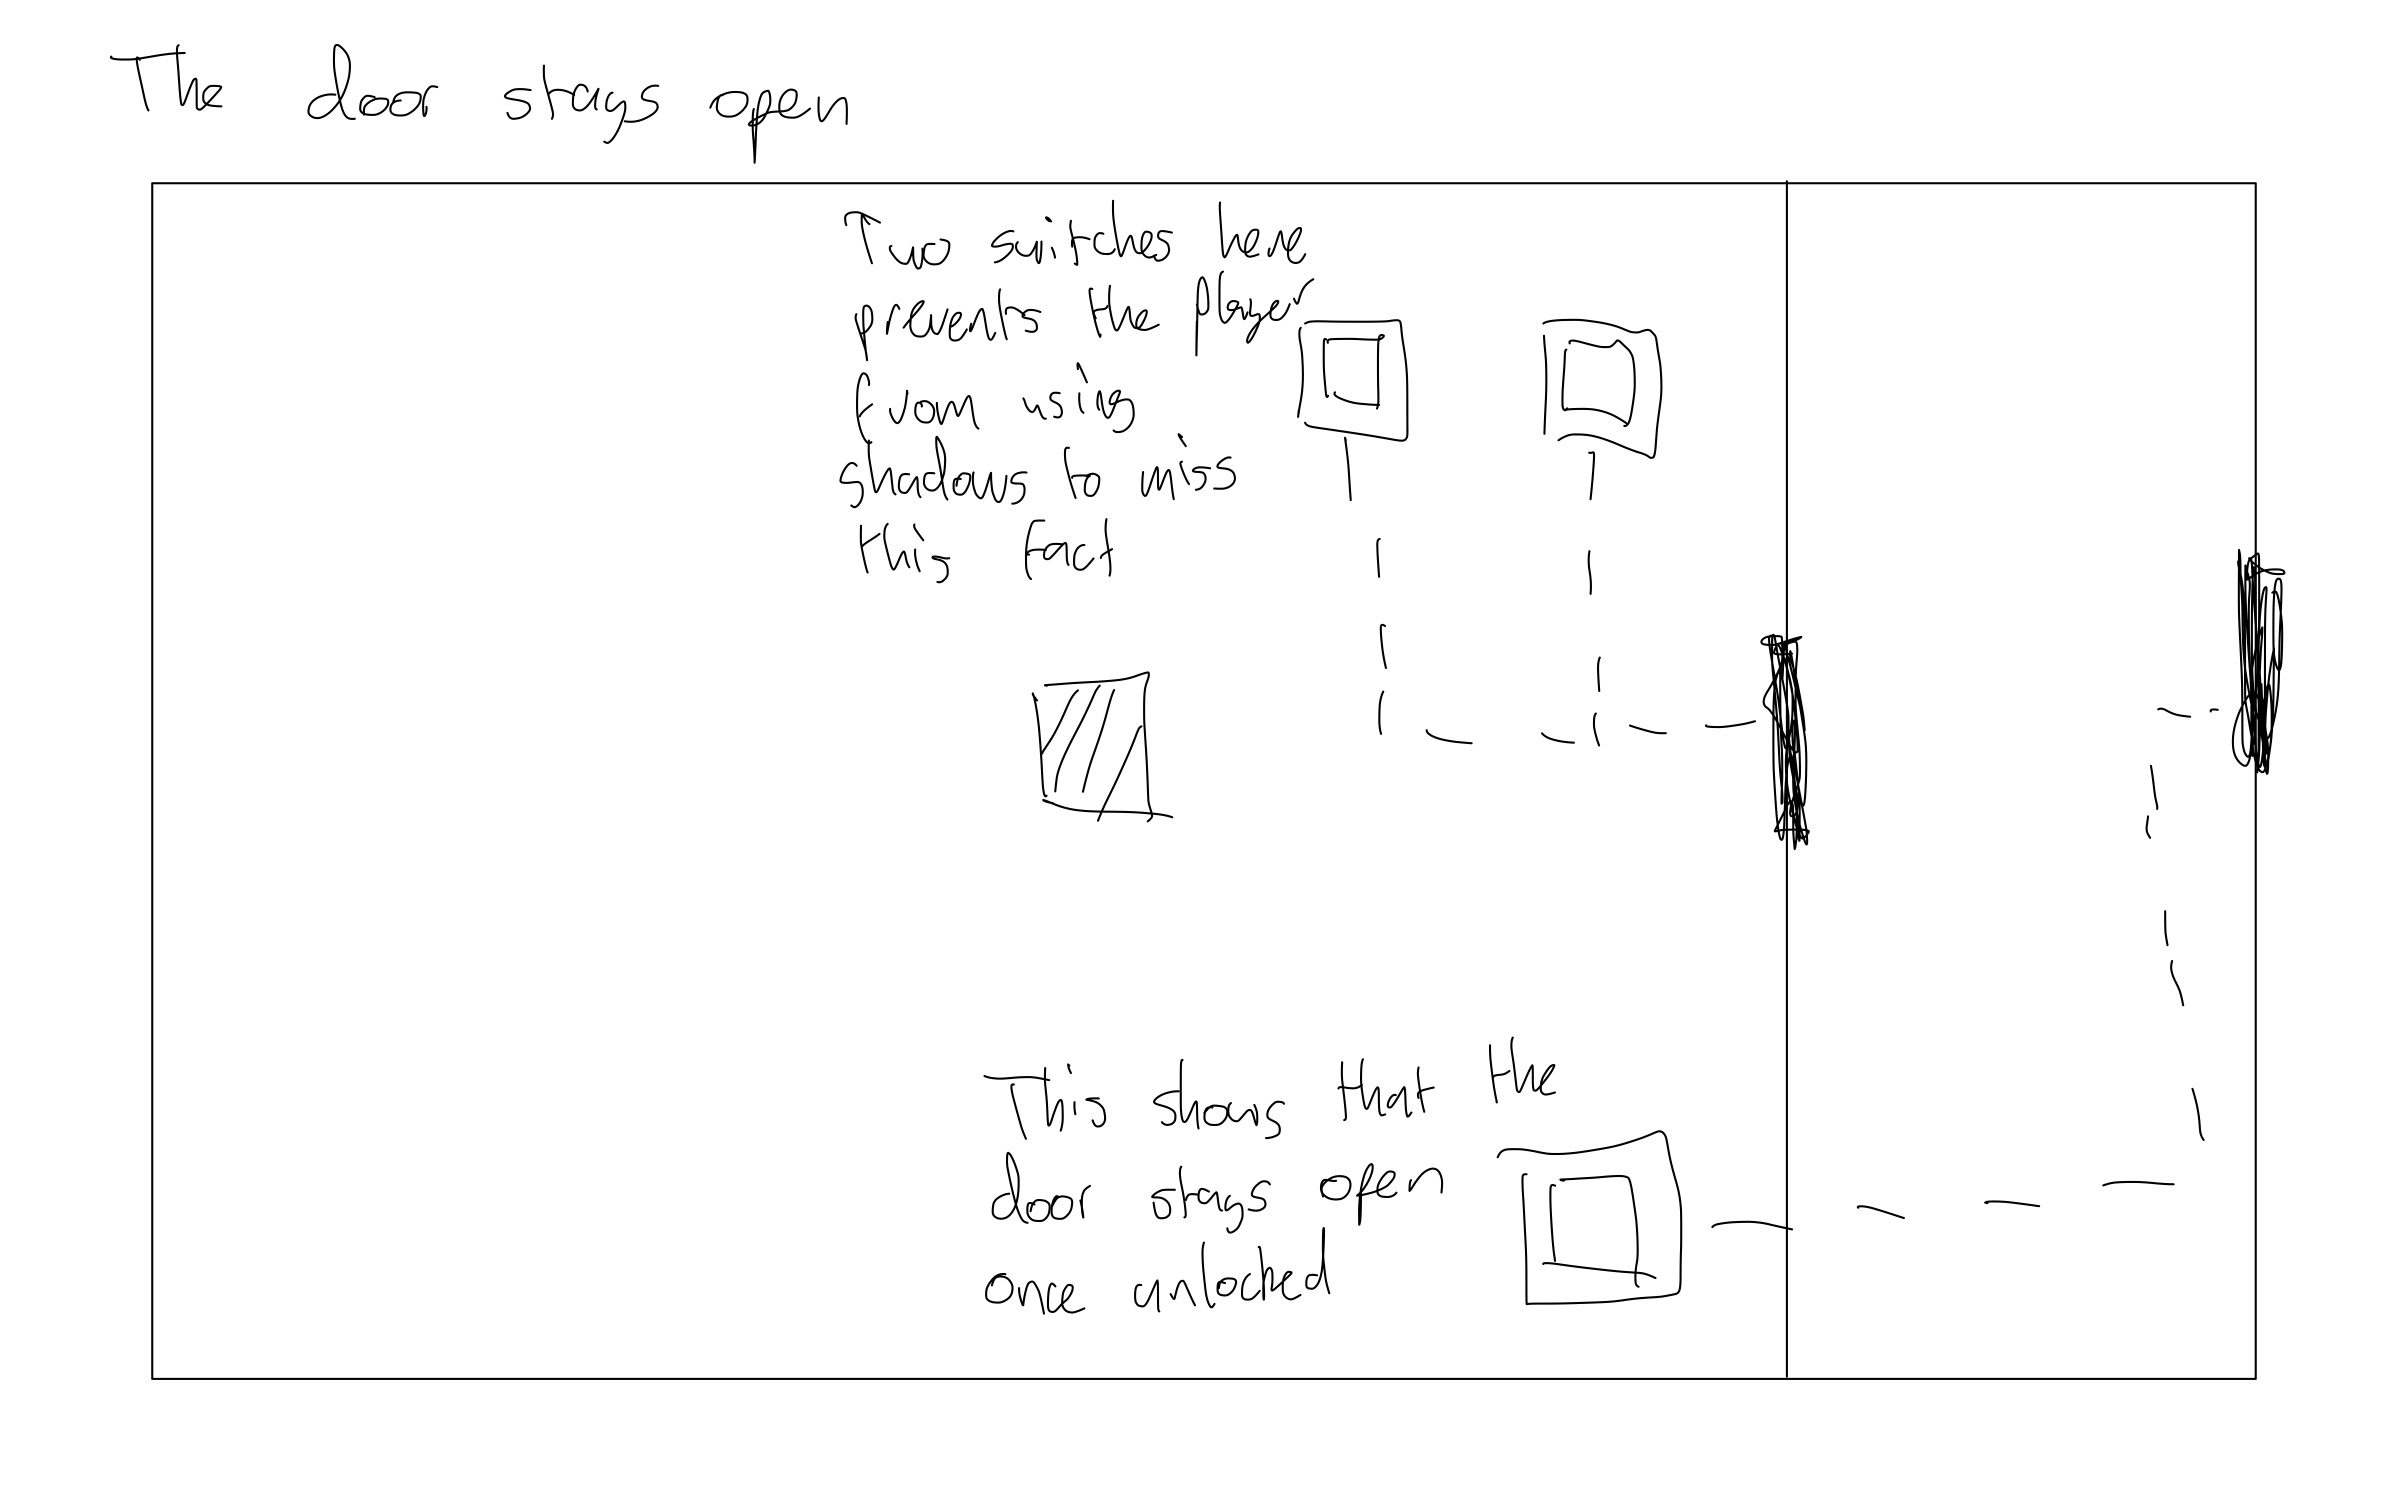 The door stays open
Two switches here
prevents the player
from using
shadows to miss
this fact
This shows that the
door stays open
once unlocked